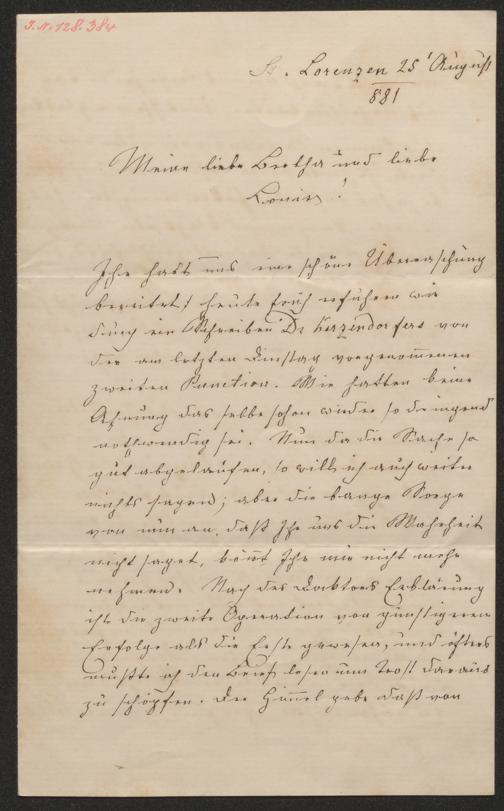 I.N. 128.384
St. Lorenzen 25' August
881
Meine liebe Bertha und liebe
Louise!
Ihr habt uns eine schöne Überraschung
bereitet! heute früh erfuhren wir
durch ein Schreiben Dr Kerzendorfers von
der am letzten Dinstag vorgenommenen
zweiten Punction. Wir hatten keine
Ahnung das selbe schon wieder so dringend
nothwendig sei. Nun da die Sache so
gut abgelaufen, so will ich auch weiter
nichts sagen; aber die bange Sorge
von nun an, daß Ihr uns die Wahrheit
nicht saget, könnt Ihr mir nicht mehr
nehmen. Nach des Doktors Erklärung
ist die zweite Operation von günstigerem
Erfolge als die Erste gewesen, und öfters
mußte ich den Brief lesen um Trost daraus
zu schöpfen. Der Himmel gebe daß von